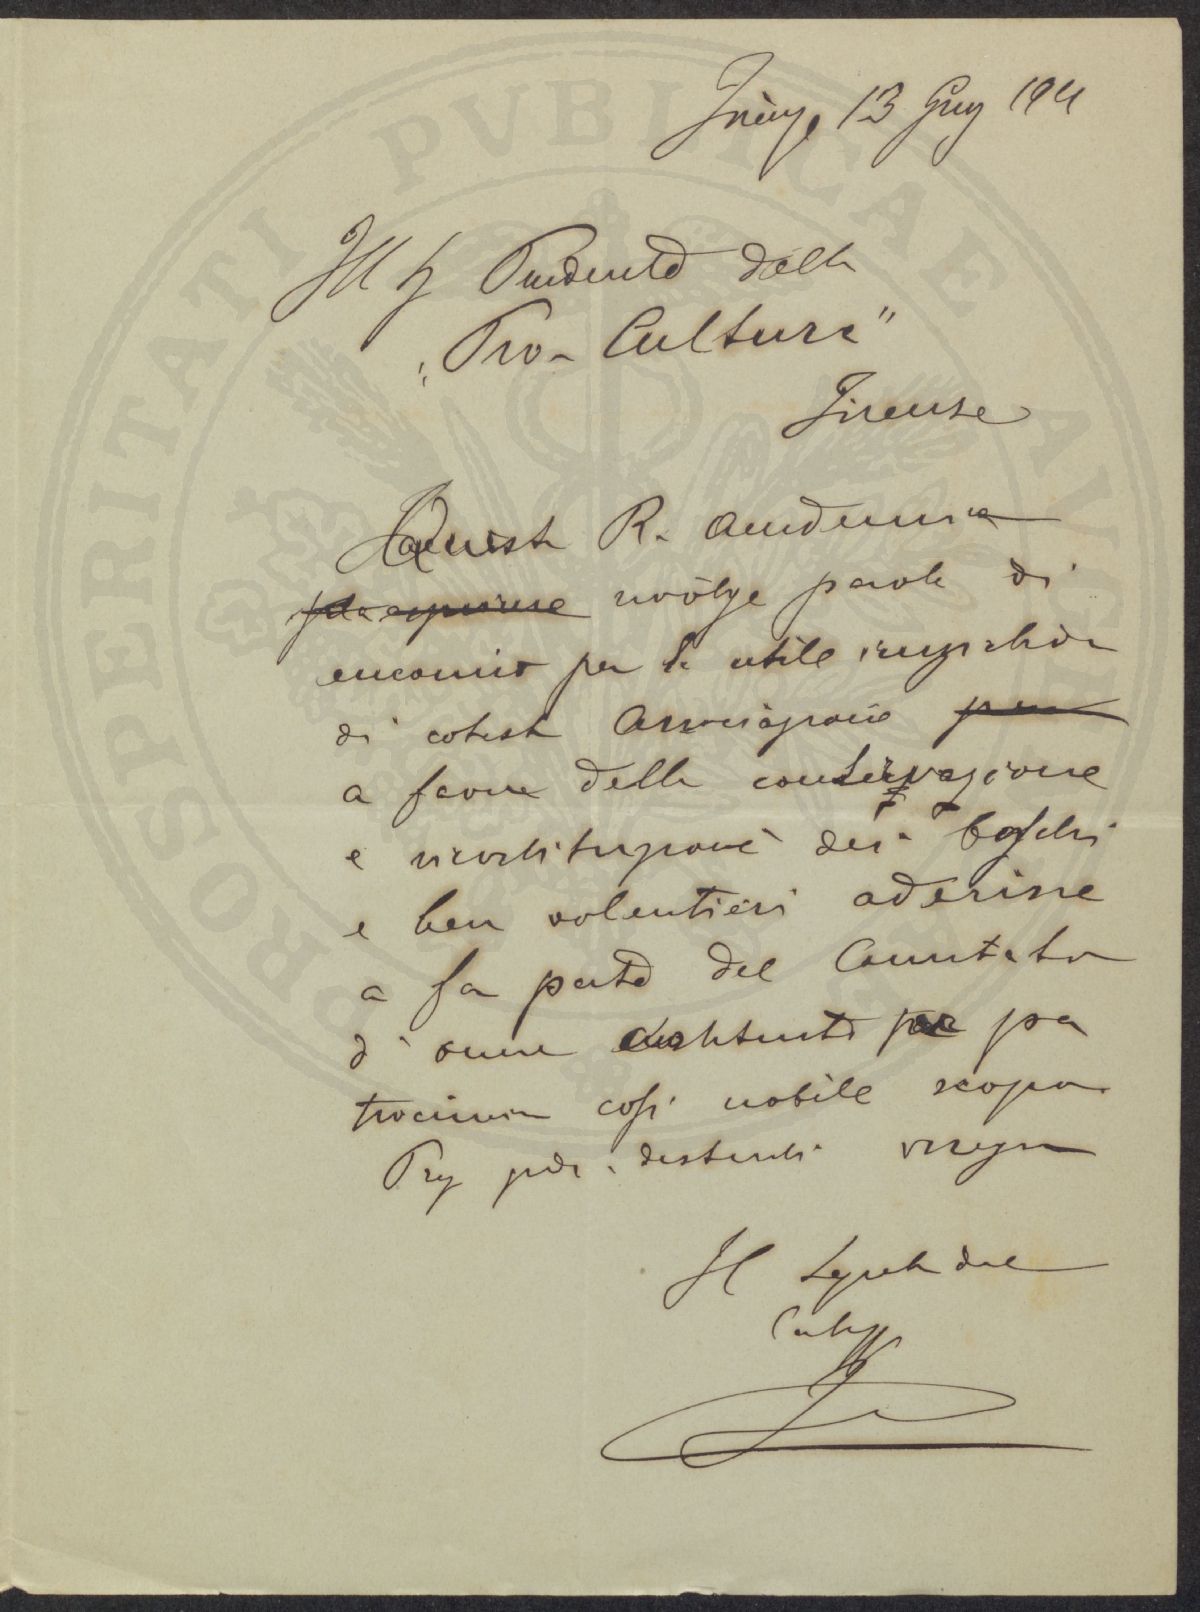 13 Giug 1911
Ill Sg Presidente della
"Pro-Cultura"
Firenze
Questa R. Accademia
rivolge parole di
encomio per la utile iniziativa
di cotesta Associazione
a favore della conservazione
e ricostituzione dei boschi
e ben volentieri aderisce
a far parte del Comitato
d'onore per pa
trocinare così nobile scopo
distinti
Il Segretario